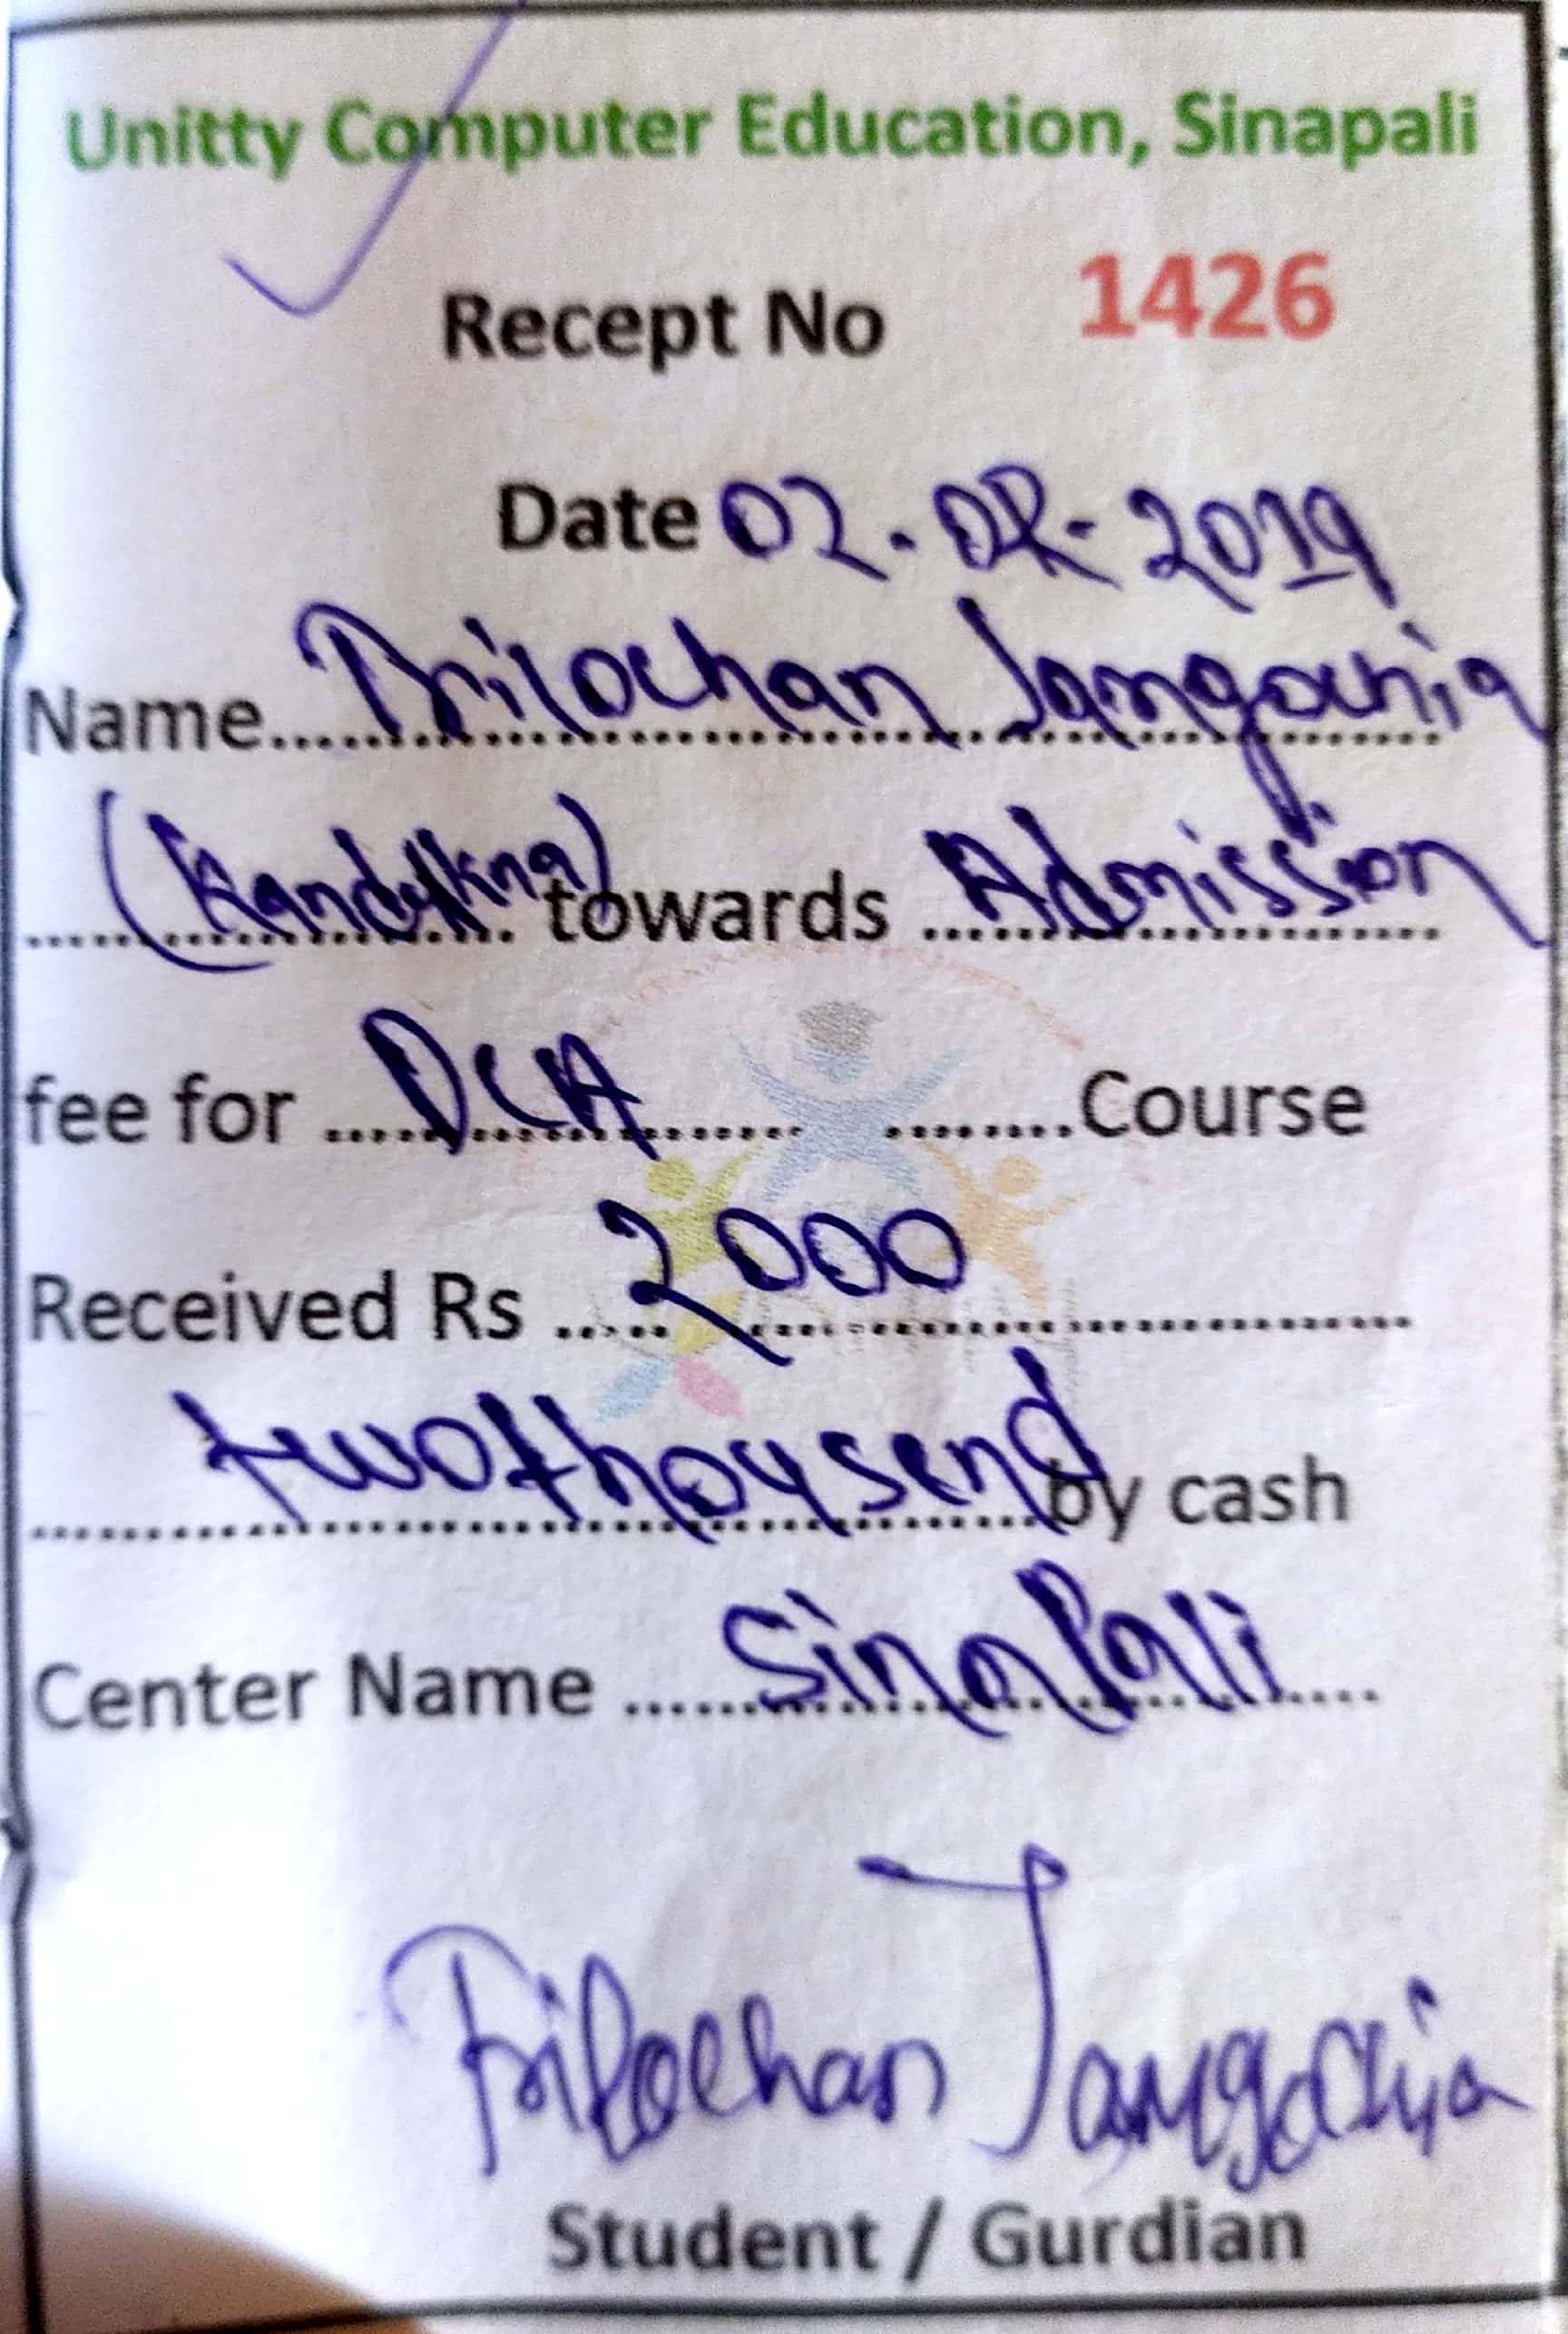 Unitty Computer Education, Sinapali
Recept No 1426
Date 02.02-2019
Name Trilochan Jamgochia
towards Admission
fee for DCA Course
Received Rs 2000
twothousend by cash
Center Name Sinapali
Trilochan Jamgochia
Student / Gurdian